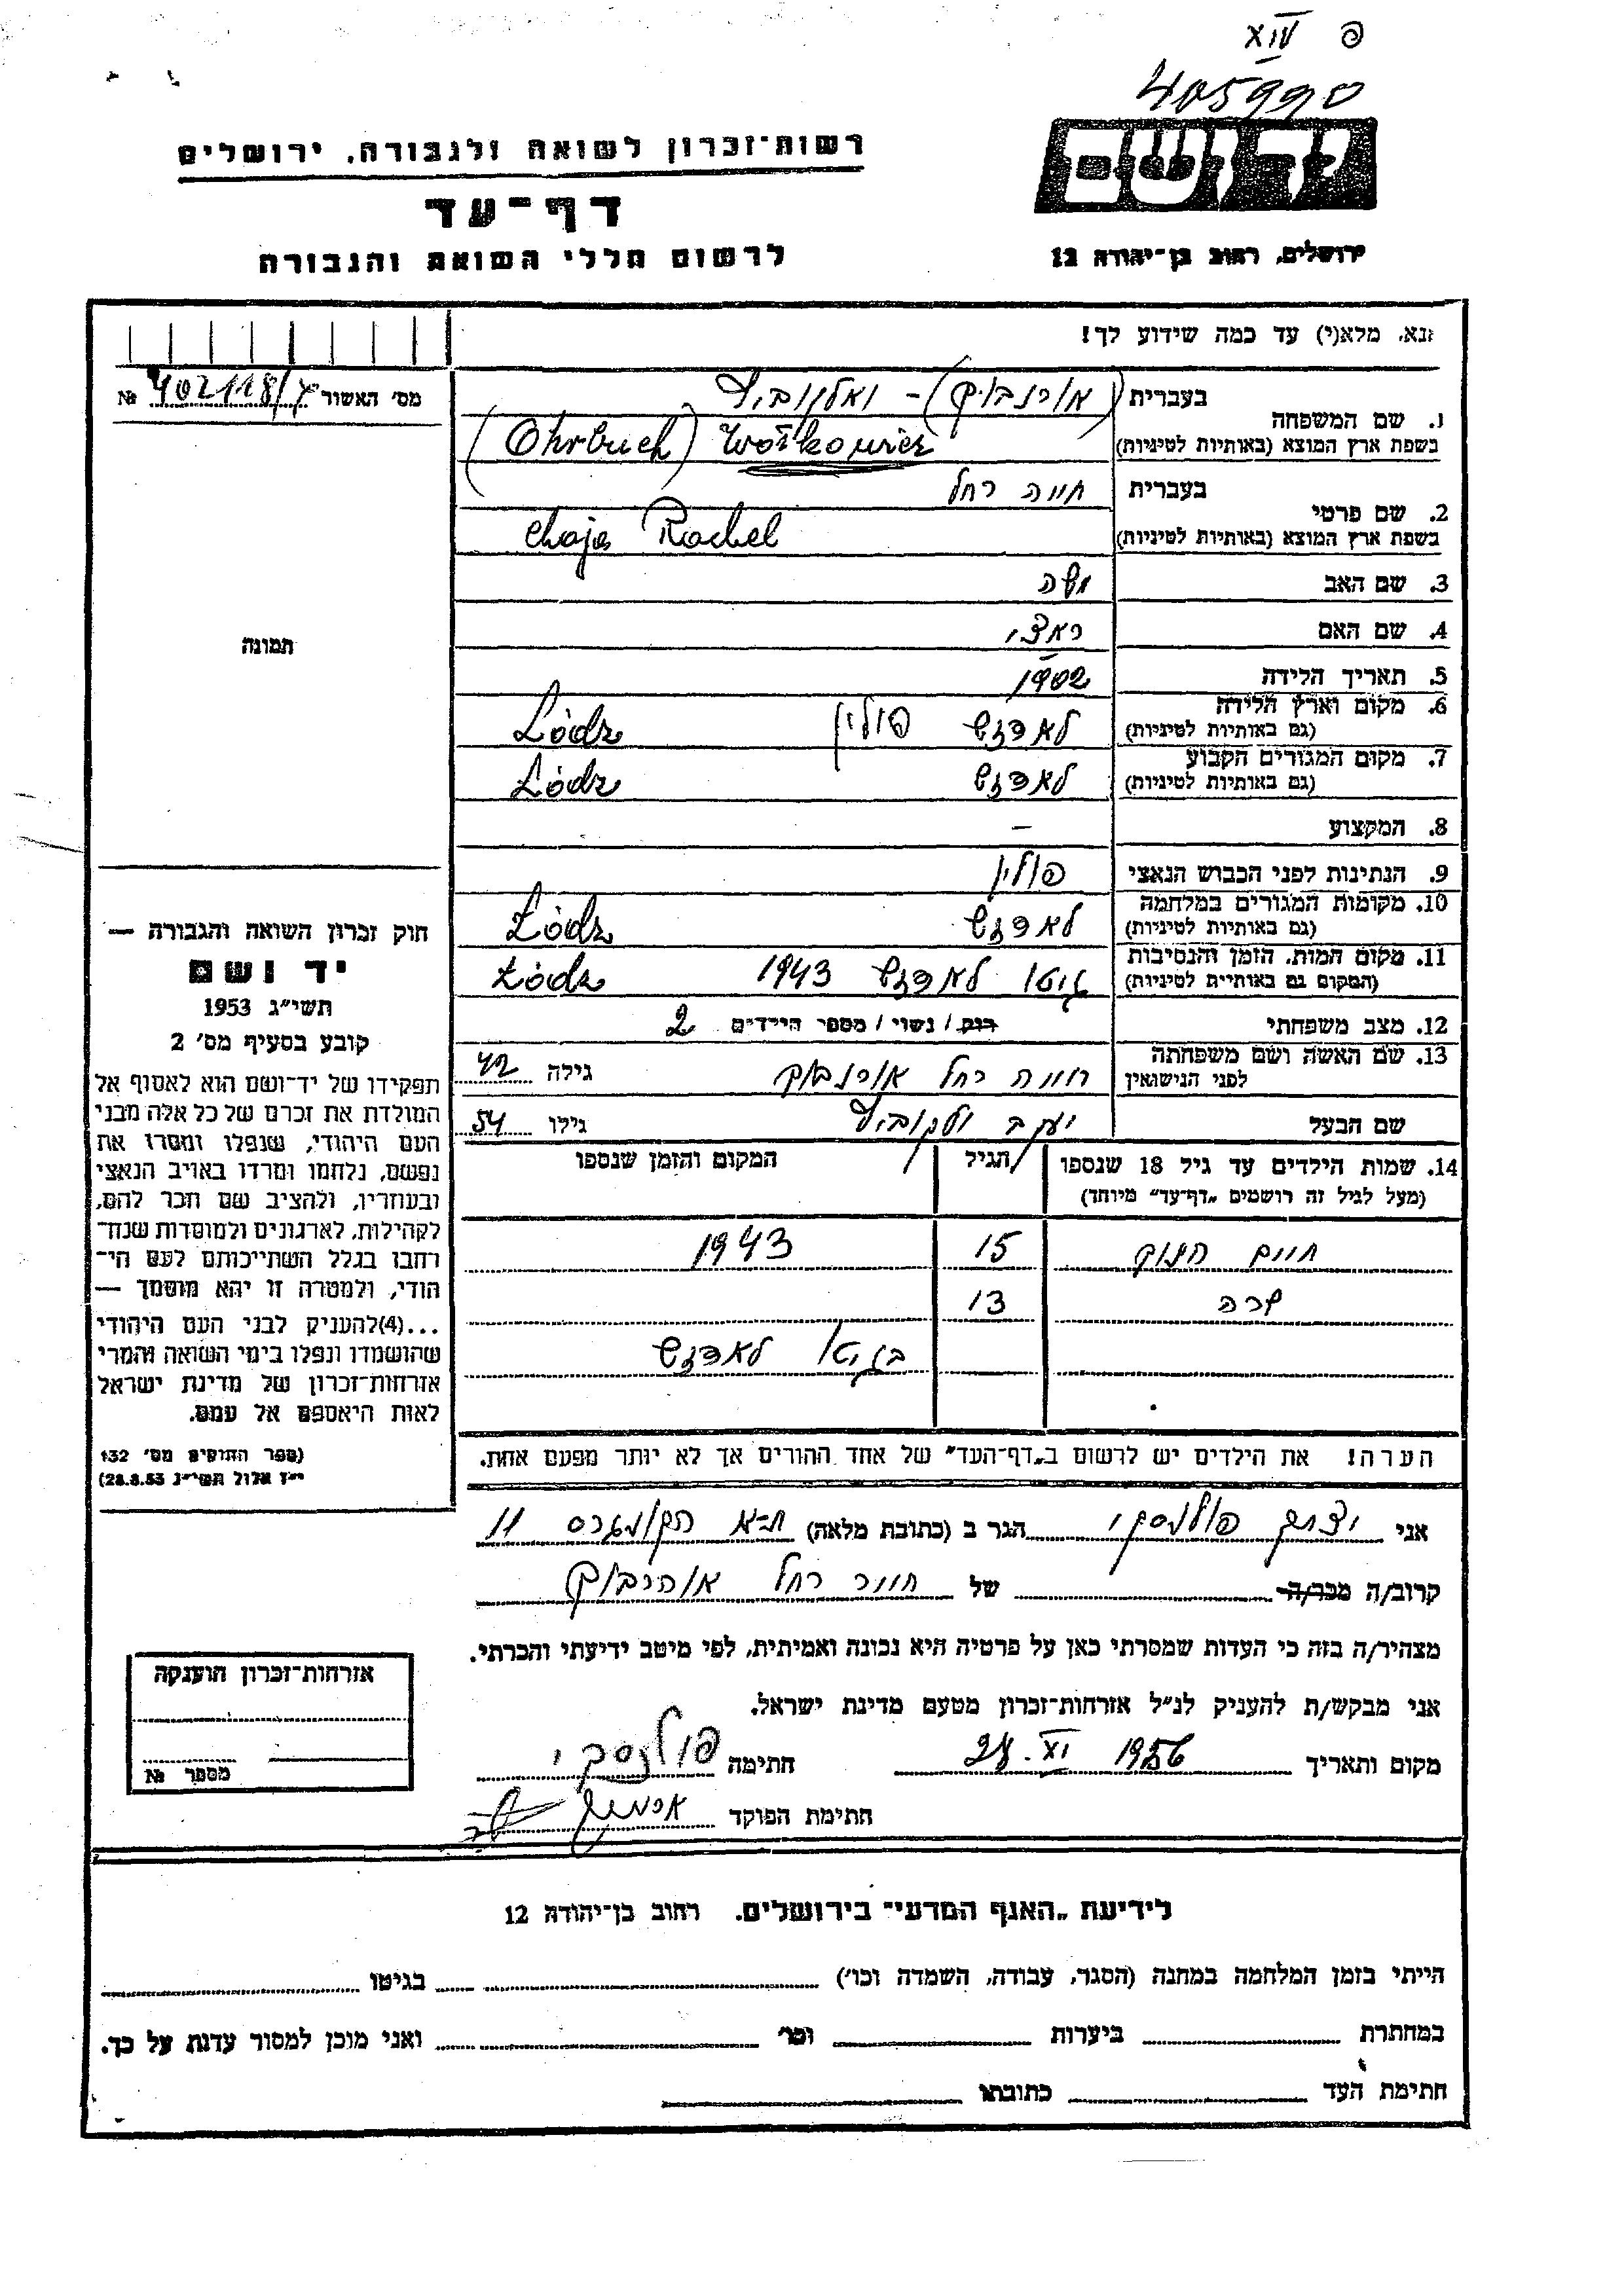 פ XIV
405990
יד ושם
רשות־זכרון לשואה ולגבורה, ירושלים
דף־עד
לרשום חללי השואה והגבורה
ירושלים, רחוב בן־יהודה 12
נא, מלא(י) עד כמה שידוע לך!
מס' האשור 402118/ №
1. שם המשפחה
בעברית (אורבוך) -
בשפת ארץ המוצא (באותיות לטיניות) (Ohrbuch) Wołkowicz
2. שם פרטי
בעברית חיה רחל
בשפת ארץ המוצא (באותיות לטיניות) Chaja Rachel
3. שם האב משה
4. שם האם
5. תאריך הלידה 1902
6. מקום וארץ הלידה (גם באותיות לטיניות) לאדזש פולין Łódz
7. מקום המגורים הקבוע (גם באותיות לטיניות) לאדזש Łódz
8. המקצוע –
9. הנתינות לפני הכבוש הנאצי פולין
10. מקומות המגורים במלחמה (גם באותיות לטיניות) לאדזש Łódz
11. מקום המות, הזמן והנסיבות (המקום גם באותיות לטיניות) גיטו לאדזש 1943 Łódz
12. מצב משפחתי רוק / נשוי / מספר הילדים 2
13. שם האשה ושם משפחתה לפני הנישואין חיה רחל אורבוך גילה 42
שם הבעל יעקב גילו 54
14. שמות הילדים עד גיל 18 שנספו (מעל לגיל זה רושמים „דף־עד" מיוחד) הגיל המקום והזמן שנספו
חיים חנוך 15 1943
שרה 13
בגיטו לאדזש
הערה! את הילדים יש לרשום ב„דף־העד" של אחד ההורים אך לא יותר מפעם אחת.
תמונה
חוק זכרון השואה והגבורה —
יד ושם
תשי"ג 1953
קובע בסעיף מס' 2
תפקידו של יד־ושם הוא לאסוף אל
המולדת את זכרם של כל אלה מבני
העם היהודי, שנפלו ומסרו את
נפשם, נלחמו ומרדו באויב הנאצי
ובעוזריו, ולהציב שם וזכר להם,
לקהילות, לארגונים ולמוסדות שנח־
רבו בגלל השתייכותם לעם הי־
הודי, ולמטרה זו יהא מוסמך —
...(4)להעניק לבני העם היהודי
שהושמדו ונפלו בימי השואה והמרי
אזרחות־זכרון של מדינת ישראל
לאות היאספם אל עמם.
(ספר החוקים מס' 132
י"ז אלול תשי"ג 28.8.53)
אני יצחק פולנסקי הגר ב (כתובת מלאה) ת־א 11
קרוב/ה מכר/ה של חיה רחל
מצהיר/ה בזה כי העדות שמסרתי כאן על פרטיה היא נכונה ואמיתית, לפי מיטב ידיעתי והכרתי.
אני מבקש/ת להעניק לנ"ל אזרחות־זכרון מטעם מדינת ישראל.
מקום ותאריך XI. 1956 חתימה פולנסקי
חתימת הפוקד
אזרחות־זכרון הוענקה
מספר №
לידיעת „האגף המדעי" בירושלים, רחוב בן־יהודה 12
הייתי בזמן המלחמה במחנה (הסגר, עבודה, השמדה וכו') בגיטו
במחתרת ביערות וכו' ואני מוכן למסור עדות על כך.
חתימת העד כתובתו